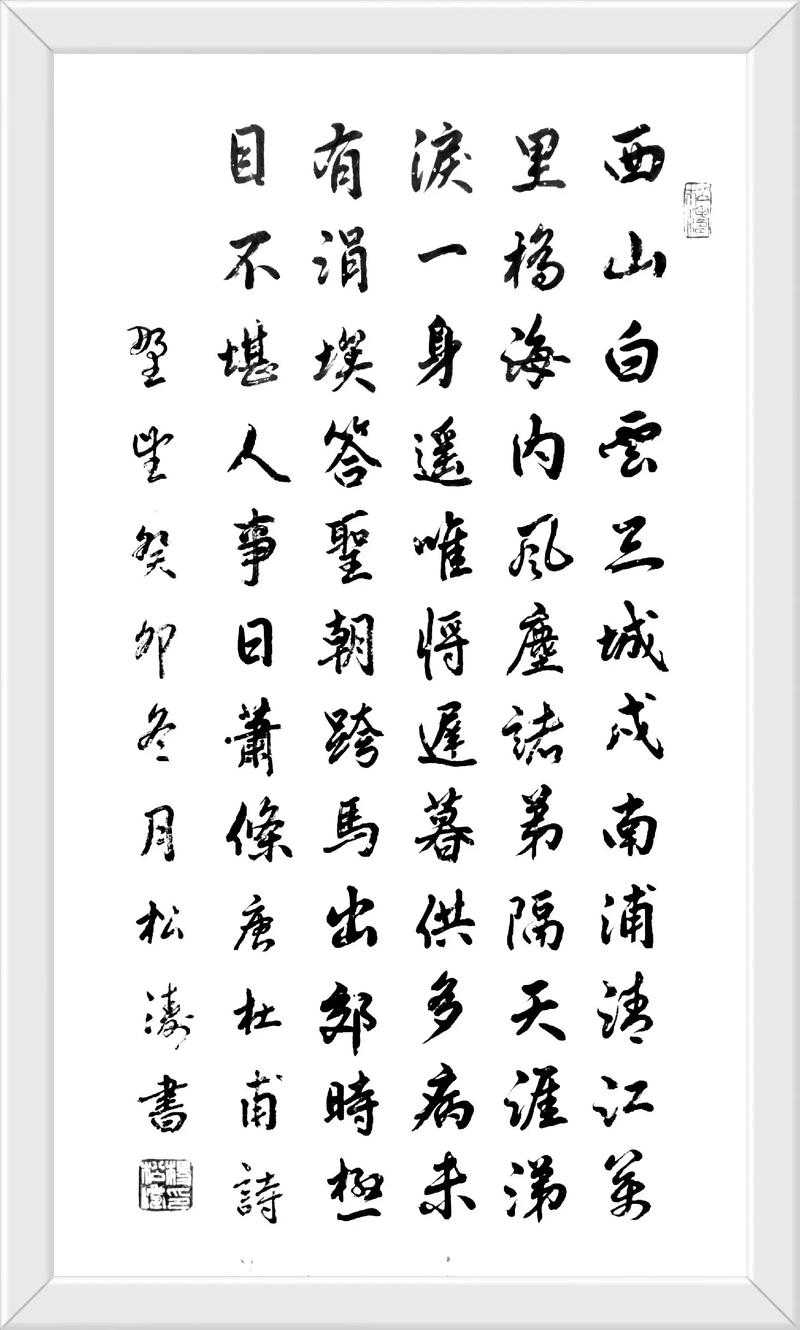 西山白雲三城戍南浦清江萬
里橋海內風塵諸弟隔天涯涕
淚一身遙唯將遲暮供多病未
有涓埃答聖朝跨馬出郊時極
目不堪人事日蕭條唐杜甫詩
野望癸卯冬月松濤書